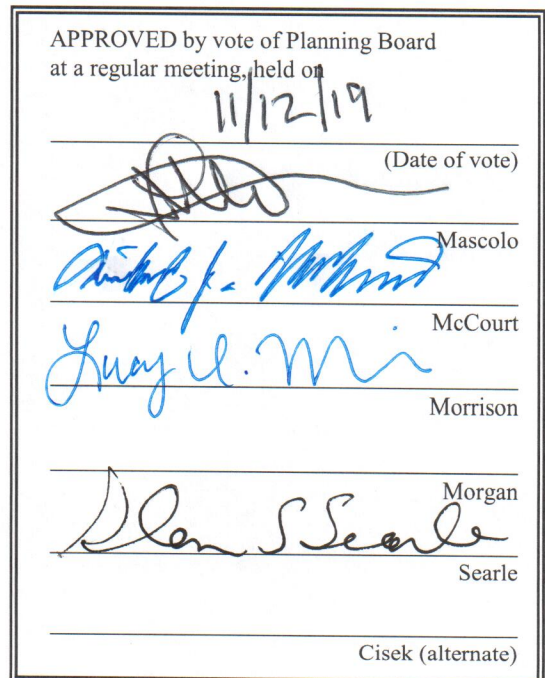 APPROVED by vote of Planning Board
at a regular meeting, held on
11/12/19
(Date of vote)
Mascolo
McCourt
Lucy A. M
Morrison
Morgan
S Searle
Searle
Cisek (alternate)